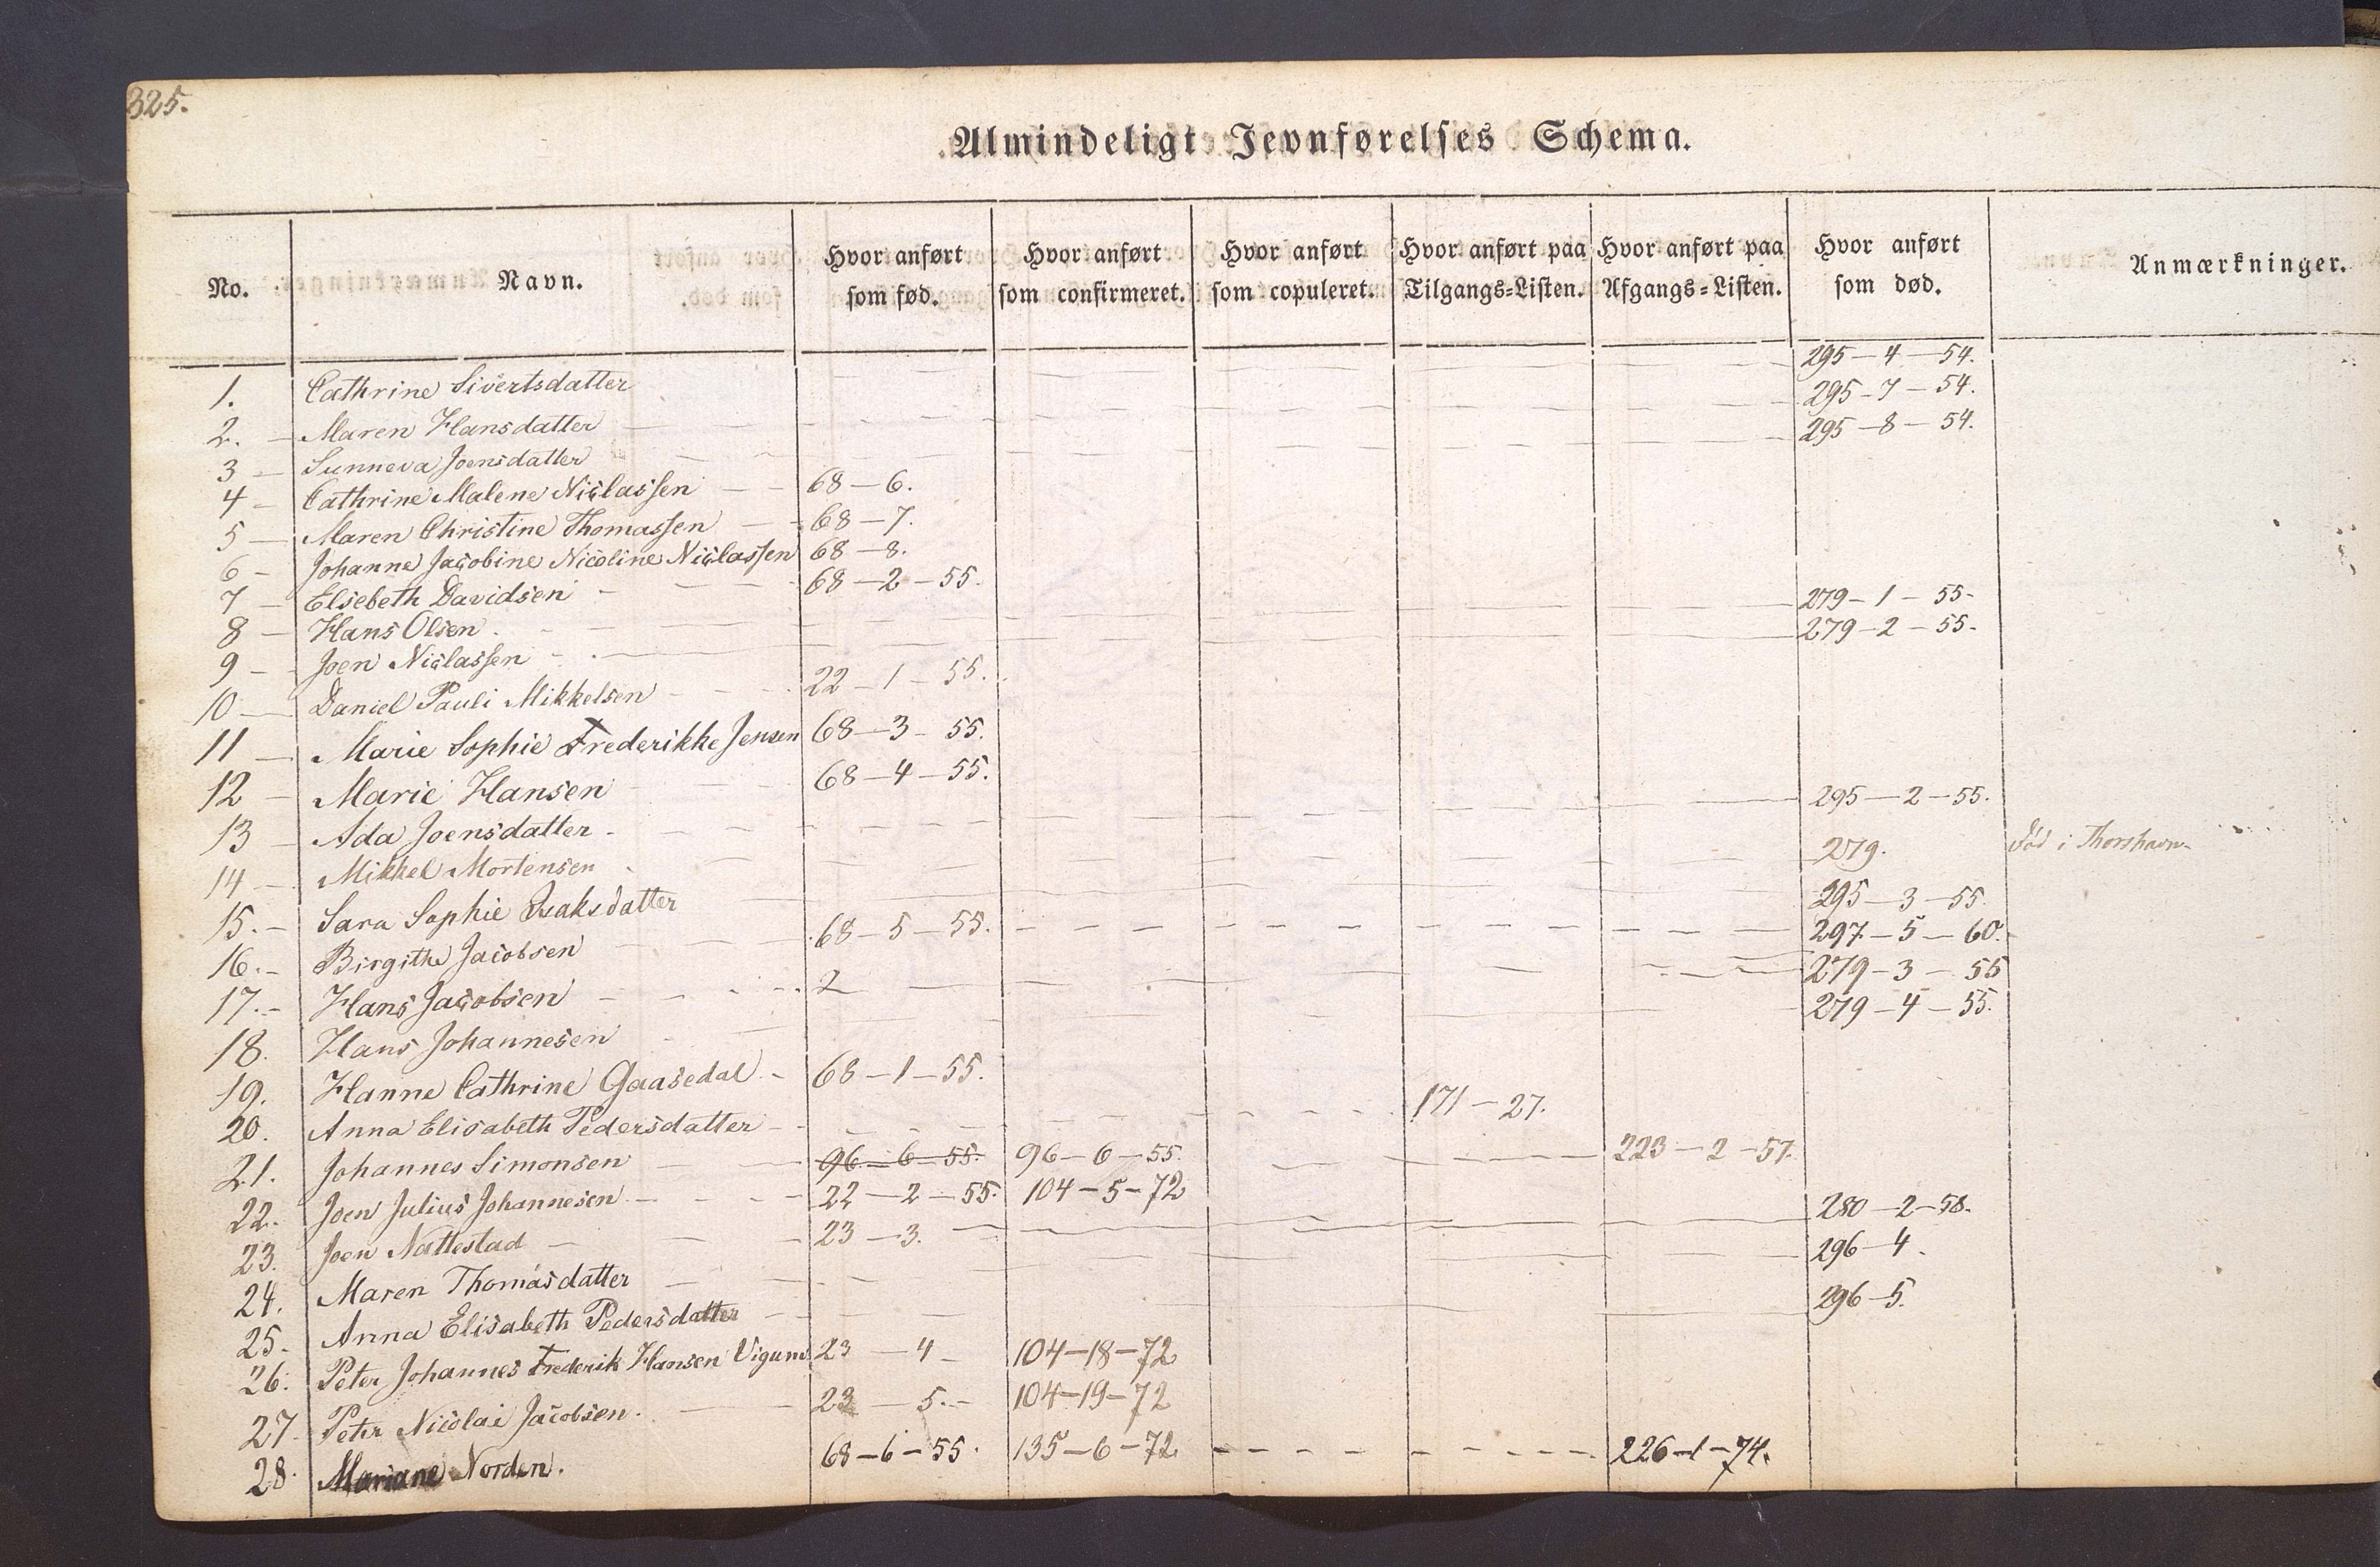 325.
Almindeligt Jevnførelses Schema.
No. Navn. Hvor anført som fød. Hvor anført som confirmeret. Hvor anført som copuleret. Hvor anført paa Tilgangs-Listen. Hvor anført paa Afgangs-Listen. Hvor anført som død. Anmærkninger.
1. Cathrine Sivertsdatter 295 — 4 — 54.
2. — Maren Hansdatter 295 — 7 — 54.
3 — Sunneva Joensdatter 295 — 8 — 54.
4 — Cathrine Malene Niclassen 68 — 6.
5 — Maren Christine Thomassen 68 — 7.
6 — Johanne Jacobine Nicoline Niclassen 68 — 8.
7 — Elsebeth Davidsen 68 — 2 — 55.
8 — Hans Olsen 279 — 1 — 55-
9 — Joen Niclassen 279 — 2 — 55-
10 — Daniel Pauli Mikkelsen 22 — 1 — 55.
11 — Marie Sophie Frederikke Jensen 68 — 3 — 55.
12 — Marie Hansen 68 — 4 — 55.
13 — Ada Joensdatter 295 — 2 — 55.
14 — Mikkel Mortensen 279. Død i Thorshavn
15. — Sara Sophie Isaksdatter 295 — 3 — 55.
16. — Birgithe Jacobsen 68 — 5 — 55. 297 — 5 — 60.
17. — Hans Jacobsen 2 279 — 3 — 55
18. Hans Johannesen 279 — 4 — 55.
19. Hanne Cathrine Gaasedal 68 — 1 — 55.
20. Anna Elisabeth Pedersdatter 171 — 27.
21. Johannes Simonsen 96 — 6 — 55. 96 — 6 — 55. 223 — 2 — 57.
22. Joen Julius Johannesen 22 — 2 — 55. 104 — 5 — 72
23. Joen Nattestad 23 — 3. 280 — 2 — 58.
24. Maren Thomasdatter 296 — 4.
25. Anna Elisabeth Pedersdatter 296 — 5.
26. Peter Johannes Frederik Hansen Vigum 23 — 4 — 104 — 18 — 72
27. Peter Nicolai Jacobsen. 23 — 5. — 104 — 19 — 72
28. Mariane Norden. 68 — 6 — 55. 135 — 6 — 72. 226 — 1 — 74.